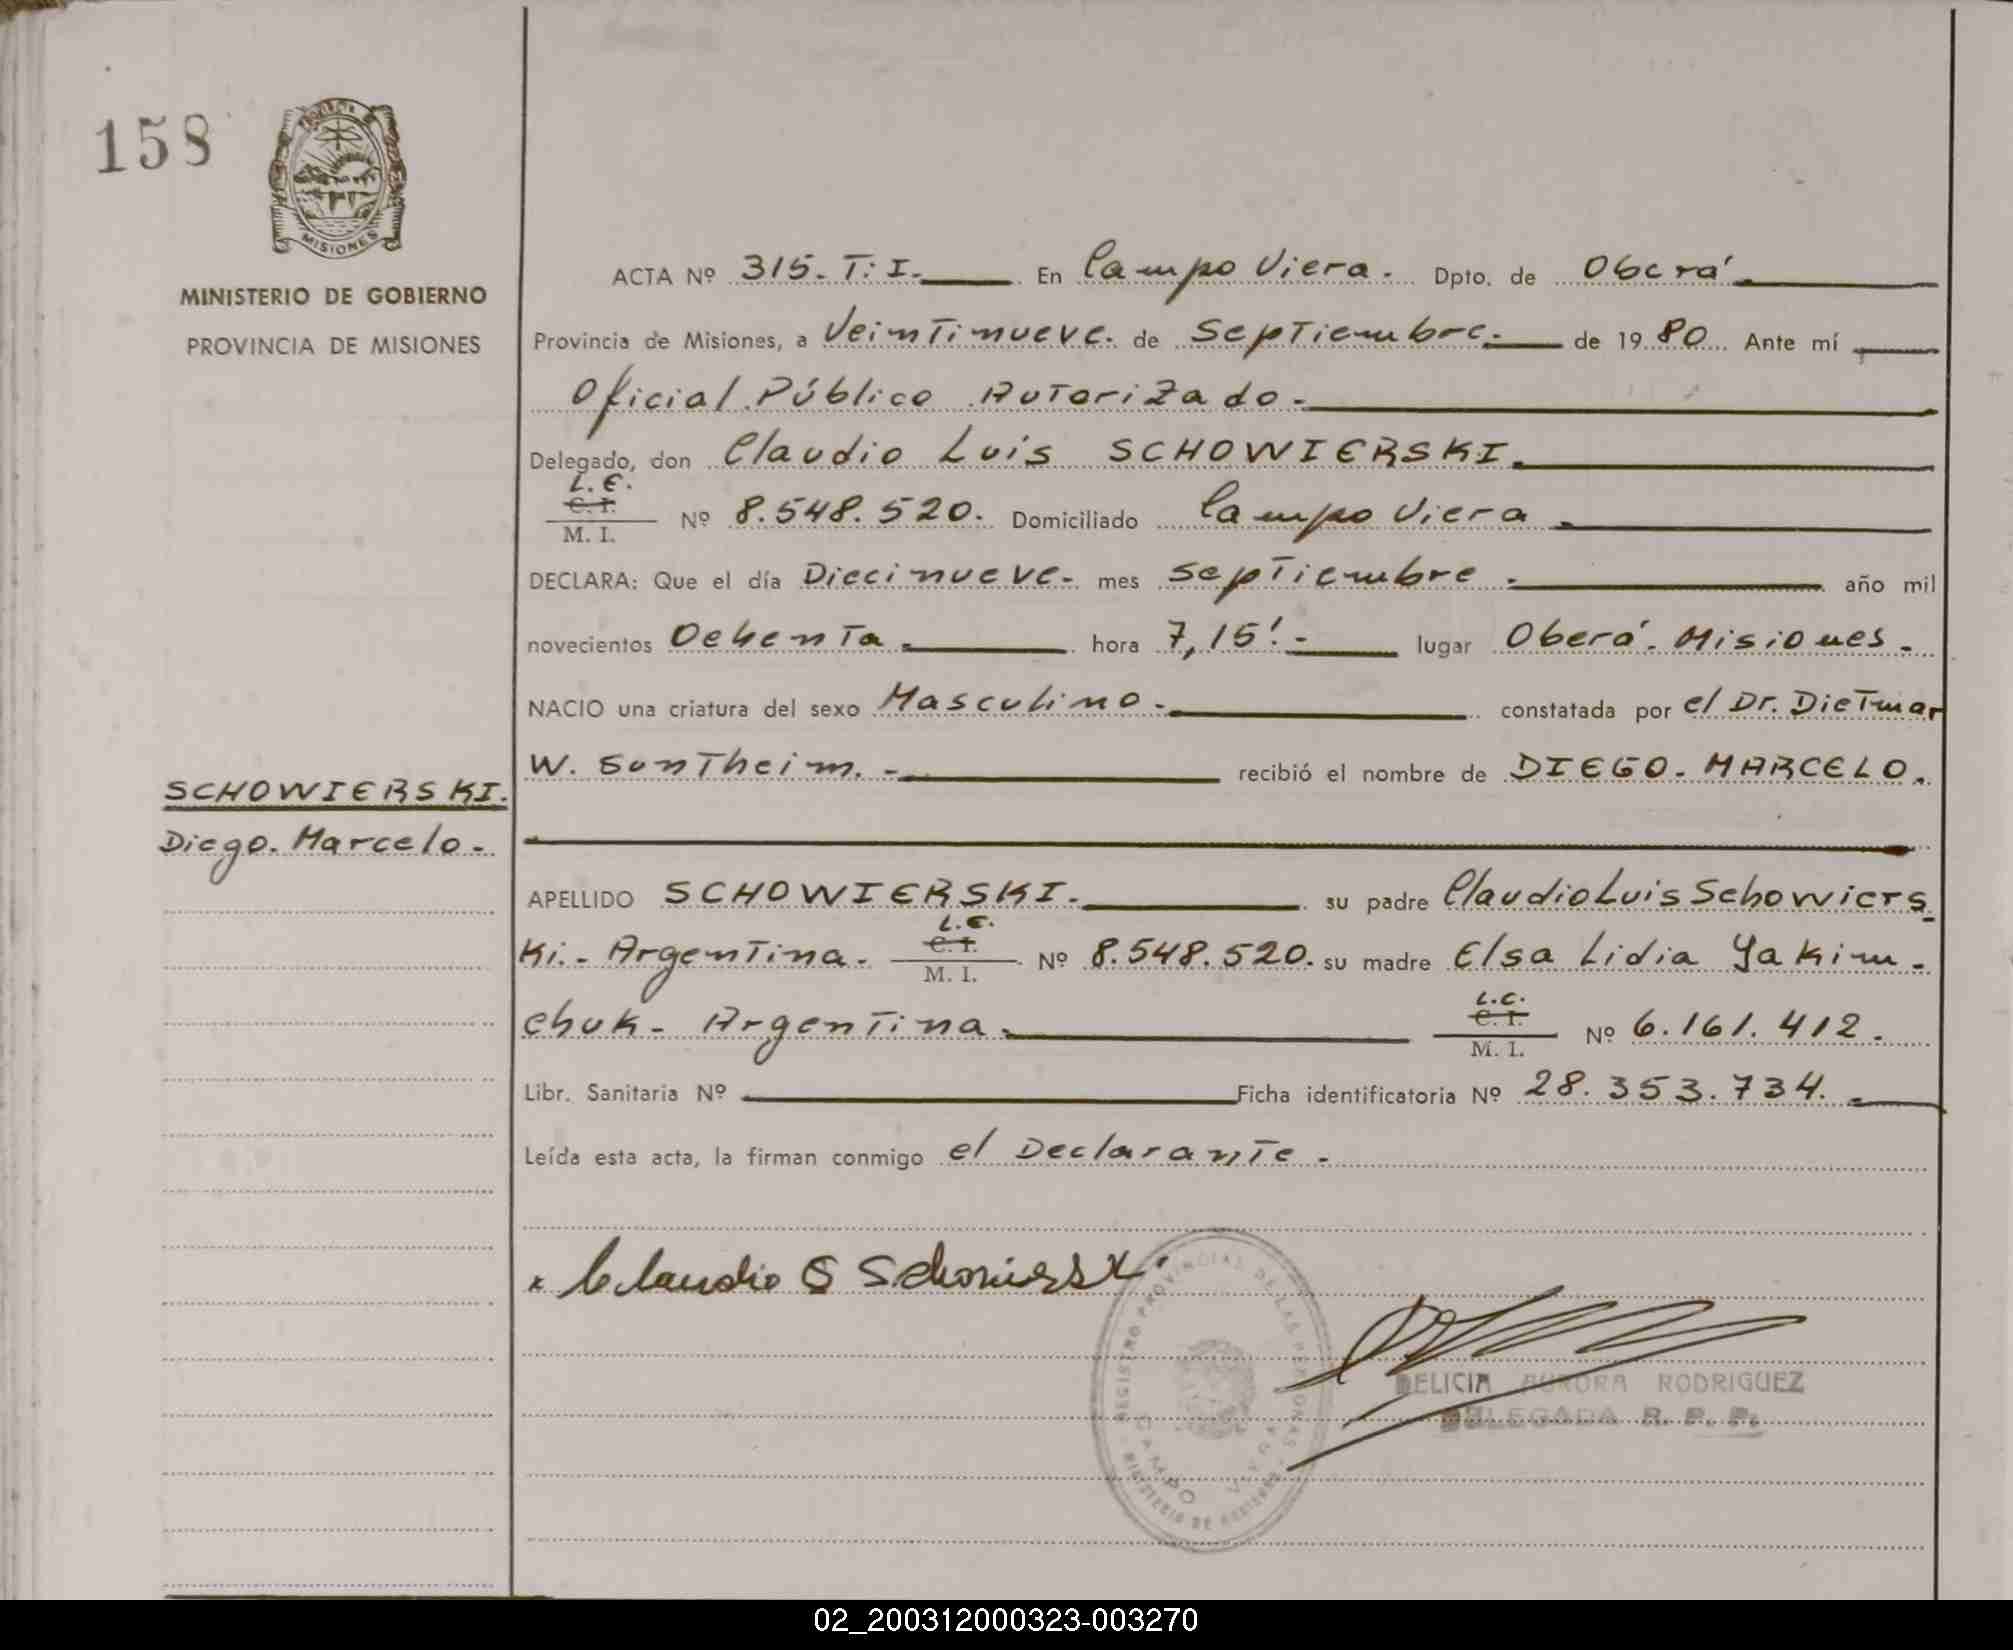 158
PROVINCIA DE
MISIONES
MINISTERIO DE GOBIERNO
PROVINCIA DE MISIONES
SCHOWIERSKI.
Diego. Marcelo.-
ACTA Nº 315. T: I. En Campo Viera. Dpto. de Oberá
Provincia de Misiones, a Veintinueve. de Septiembre. de 1980 Ante mí
Oficial Público Autorizado.
Delegado, don Claudio Luis SCHOWIERSKI.
L.E.
C. I.
M. I. Nº 8.548.520. Domiciliado Campo Viera
DECLARA: Que el día Diecinueve- mes septiembre. año mil
novecientos Ochenta. hora 7,15'.- lugar Oberá. Misiones.-
NACIO una criatura del sexo Masculino.- constatada por el Dr. Dietmar
W. Suntheim. - recibió el nombre de DIEGO. MARCELO.
APELLIDO SCHOWIERSKI. su padre Claudio Luis Schowiers
L.E.
C. I.
ki.- Argentina. M. I. Nº 8.548.520. su madre Elsa Lidia Yakim-
L.C.
C. I.
chuk- Argentina. M. I. Nº 6.161.412.
Libr. Sanitaria Nº Ficha identificatoria Nº 28.353.734.
Leída esta acta, la firman conmigo el Declarante.
REGISTRO PROVINCIAS DE LAS PERSONAS
CAMPO VIERA
MINISTERIO DE GOBIERNO
DELICIA AURORA RODRIGUEZ
DELEGADA R. P. P.
02_200312000323-003270